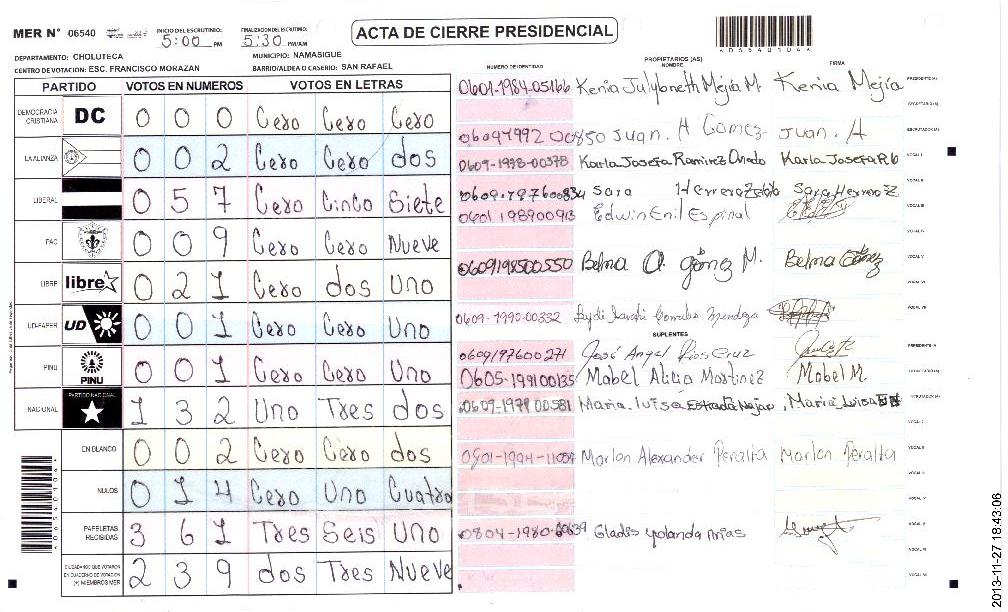 MER N° 06540
INICIO DEL ESCRUTINIO: 5:00 PM
FINALIZACION DEL ESCRUTINIO: 5:30 PM/AM
ACTA DE CIERRE PRESIDENCIAL
DEPARTAMENTO: CHOLUTECA MUNICIPIO: NAMASIGUE
CENTRO DE VOTACION: ESC. FRANCISCO MORAZAN BARRIO/ALDEA O CASERIO: SAN RAFAEL
PARTIDO VOTOS EN NUMEROS VOTOS EN LETRAS
DEMOCRACIA CRISTIANA DC 0 0 0 Cero Cero Cero
LA ALIANZA 0 0 2 Cero Cero dos
LIBERAL 0 5 7 Cero Cinco Siete
PAC 0 0 9 Cero Cero Nueve
LIBRE libre 0 2 1 Cero dos Uno
UD-FAPER UD 0 0 1 Cero Cero Uno
PINU PINU 0 0 1 Cero Cero Uno
NACIONAL PARTIDO NACIONAL 1 3 2 Uno Tres dos
EN BLANCO 0 0 2 Cero Cero dos
NULOS 0 1 4 Cero Uno Cuatro
PAPELETAS RECIBIDAS 3 6 1 Tres Seis Uno
CIUDADANOS QUE VOTARON EN CUADERNO DE VOTACION (+) MIEMBROS MER 2 3 9 dos Tres Nueve
PROPIETARIOS (AS)
NUMERO DE IDENTIDAD NOMBRE FIRMA
0601-1984-05166 Kenia Julybneth Mejía M. Kenia Mejía PRESIDENTE(A)
SECRETARIO(A)
Juan. A Gomez Juan. A ESCRUTADOR(A)
0609-1978-00378 Karla Josefa Ramirez Karla Josefa R VOCAL I
Sara Herrera Sara VOCAL II
0601 198900913 Edwin Enil Espinal VOCAL III
VOCAL IV
0609198500550 Belma A. gómez M. Belma gómez VOCAL V
VOCAL VI
0609-1990-00332 Mendoza VOCAL VII
SUPLENTES
0609197600271 José Angel Rios Cruz PRESIDENTE(A)
0605-199100135 Mabel Alicia Martinez Mabel M. SECRETARIO(A)
0609-1979 00581 Maria. luisa Estrada Maria Luisa ESCRUTADOR(A)
VOCAL I
Marlon Alexander Peralta Marlon Peralta VOCAL II
VOCAL III
VOCAL IV
Gladis yolanda Arias VOCAL V
VOCAL VI
VOCAL VII
2013-11-27 18:43:06